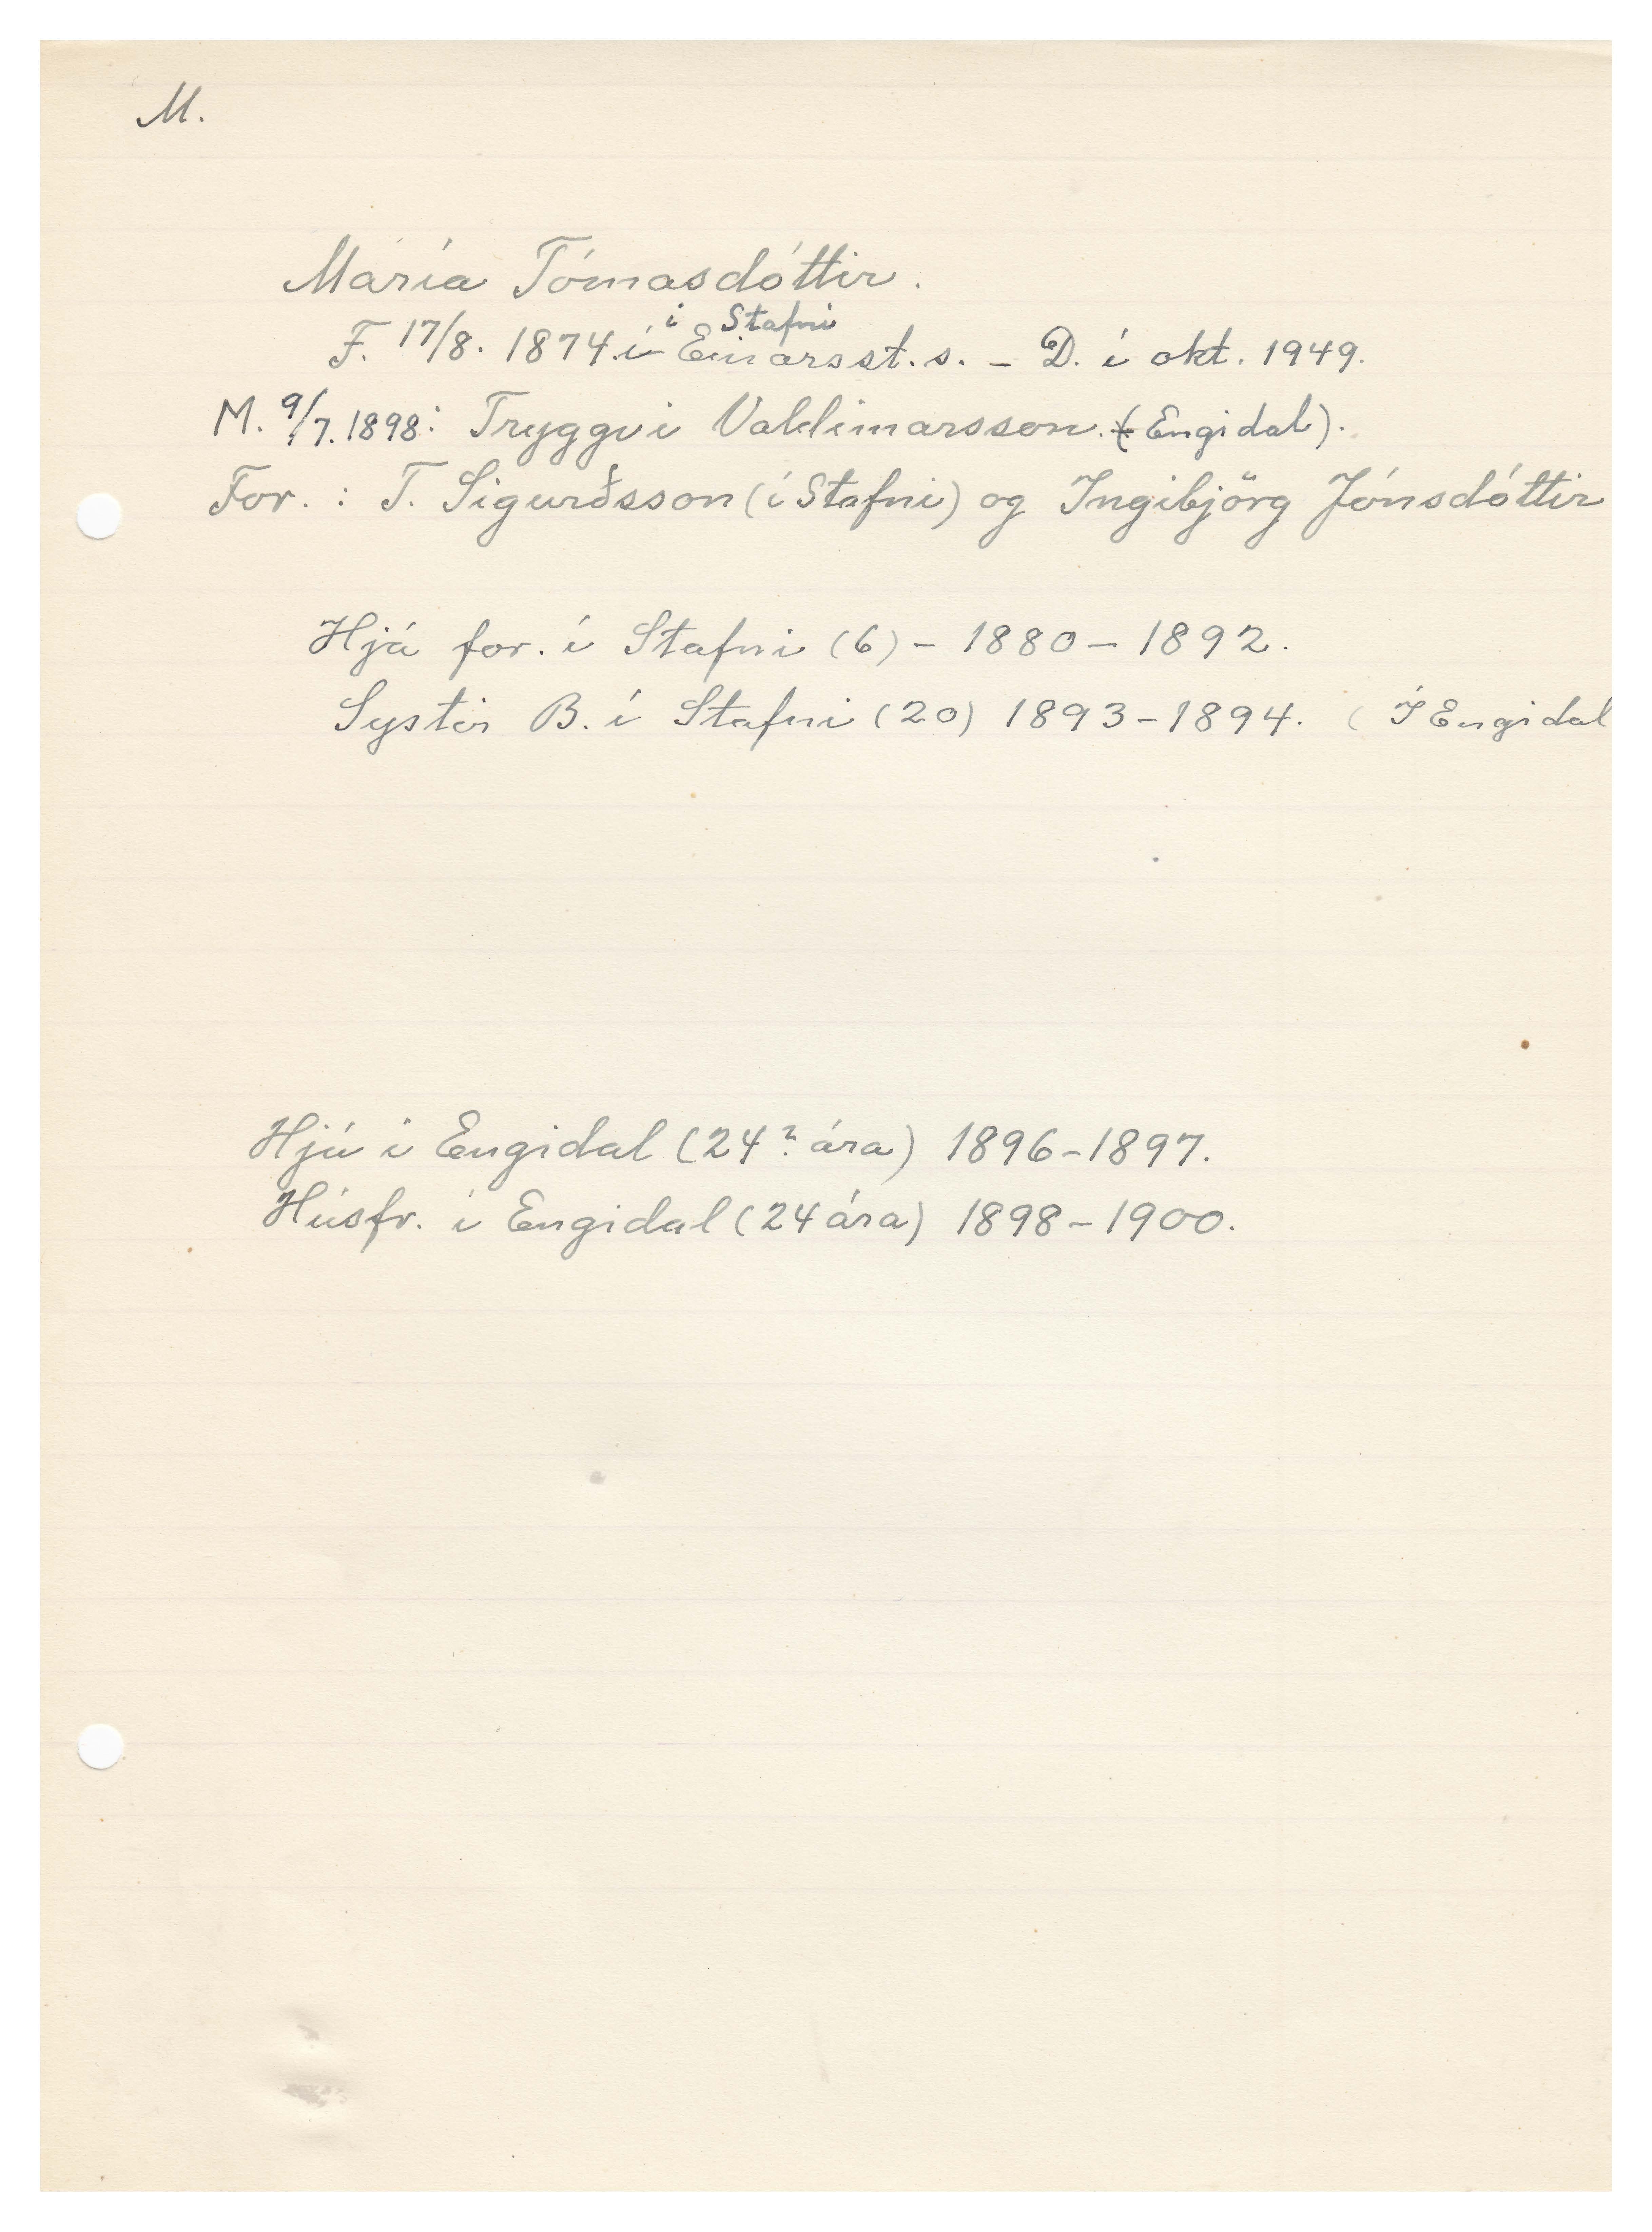 M.
María Tómasdóttir.
í Stafni
F. 17/8. 1874 í Einarsst.s. - D. í okt. 1949.
M. 9/7. 1898: Tryggvi Valdimarsson. (Engidal).
For. : T. Sigurðsson (í Stafni) og Ingibjörg Jónsdóttir
Hjá for. í Stafni (6) - 1880 - 1892.
Systir B. í Stafni (20) 1893-1894. ( Í Engidal
Hjú í Engidal (24? ára) 1896-1897.
Húsfr. í Engidal (24 ára) 1898-1900.